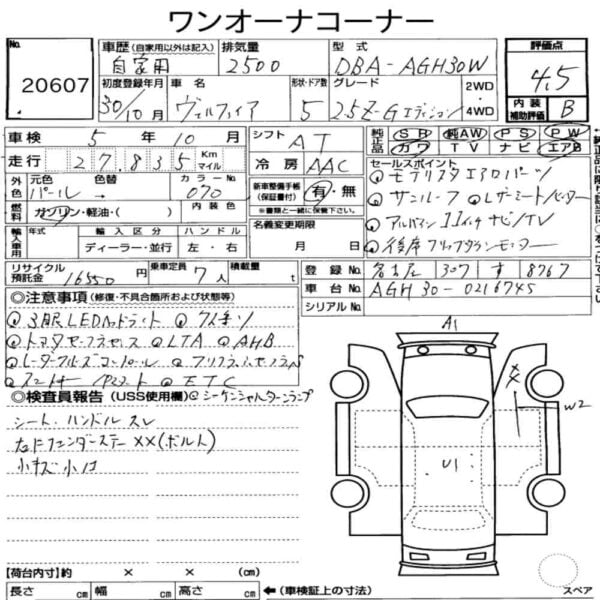 ワンオーナーコーナー
No. 20607
車歴 (自家用以外は記入) 自家用
排気量 2500
型式 DBA-AGH30W
評価点 4.5
内装補助評価 B
初度登録年月 30年10月
車名 ヴェルファイア
形状・ドア数 5
グレード 2.5Z-Gエディション
2WD・4WD
車検 5年10月
シフト AT
純正品 SR 純AW PS PW
カワ TV ナビ エアB
走行 27,835 Km マイル
冷房 AAC
外色 元色 パール 色替 カラーNo 070
内装色
燃料 ガソリン・軽油・( )
新車整備手帳(保証書付) 有・無
※書類と一緒に保管下さい。
セールスポイント
モデリスタエアロパーツ
サンルーフ レザーシートヒーター
アルパイン11インチナビ/TV
後席フリップダウンモニター
輸入車用 年式 輸入区分 ディーラー・並行 ハンドル 左・右
名義変更期限 月 日
リサイクル預託金 16550円
乗車定員 7人
積載量 t
登録No. 名古屋 307 す 8767
車台No. AGH30-0216745
シリアルNo.
◎注意事項 (修復・不具合箇所および状態等)
3眼LEDヘッドライト
トヨタセーフティセンス LTA AHB
レーダークルーズコントロール
ETC
シーケンシャルターンランプ
◎検査員報告 (USS使用欄)
シート、ハンドルスレ
右Fフェンダーステー××(ボルト)
小キズ小凹
A1
××
W2
U1
【荷台内寸】約 × × (cm)
長さ cm 幅 cm 高さ cm
←(車検証上の寸法)
スペア